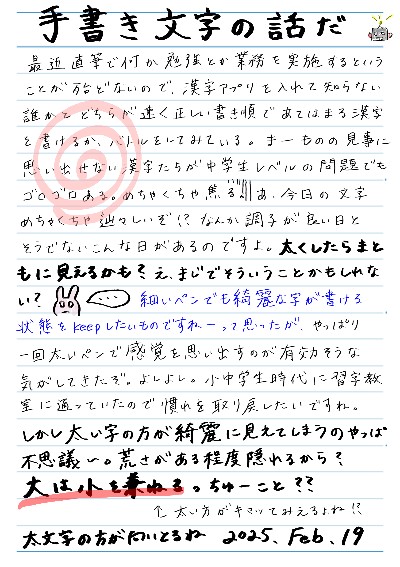 手書き文字の話だ
最近直筆で何か勉強とか業務を実施するという
ことが殆どないので、漢字アプリを入れて知らない
誰かとどちらが速く正しい書き順であてはまる漢字
を書けるか、バトルをしてみている。まーものの見事に
思い出せない漢字たちが中学生レベルの問題でも
ゴロゴロある。めちゃくちゃ焦る!!! あ、今日の文字
めちゃくちゃ辿々しいぞ!? なんか調子が良い日と
そうでないこんな日があるのですよ。太くしたらまと
もに見えるかも? え、まじでそういうことかもしれな
い? ... 細いペンでも綺麗な字が書ける
状態をkeepしたいものですねーって思ったが、やっぱり
一回太いペンで感覚を思い出すのが有効そうな
気がしてきたぞ。よしよし。小中学生時代に習字教
室に通っていたので慣れを取り戻したいですね。
しかし太い字の方が綺麗に見えてしまうのやっぱ
不思議〜。荒さがある程度隠れるから?
大は小を兼ねるっちゅーこと??
↑太い方がキマッてみえるよね!?
太文字の方が向いとるね 2025. Feb. 19